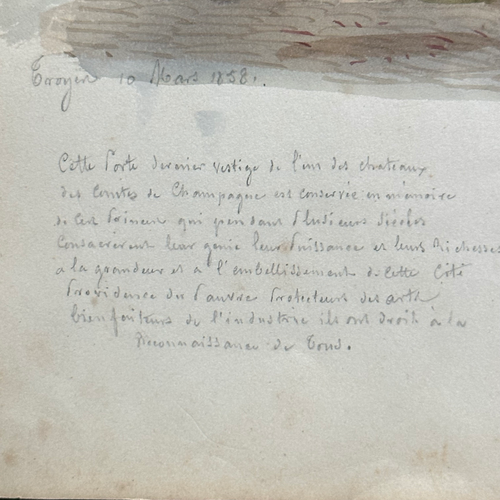 Troyes 10 Mars 1858.
Cette Porte dernier vestige de l'un des chateaux
des Comtes de Champagne est conservée en mémoire
de ces Princes qui pendant Plusieurs Siècles
Consacrèrent leur génie leur Puissance et leurs Richesses
a la grandeur et a l'embellissement de cette Cité
Providence du Pauvre Protecteurs des arts
bienfaiteurs de l'industrie ils ont droit à la
Reconnaissance de Tous.